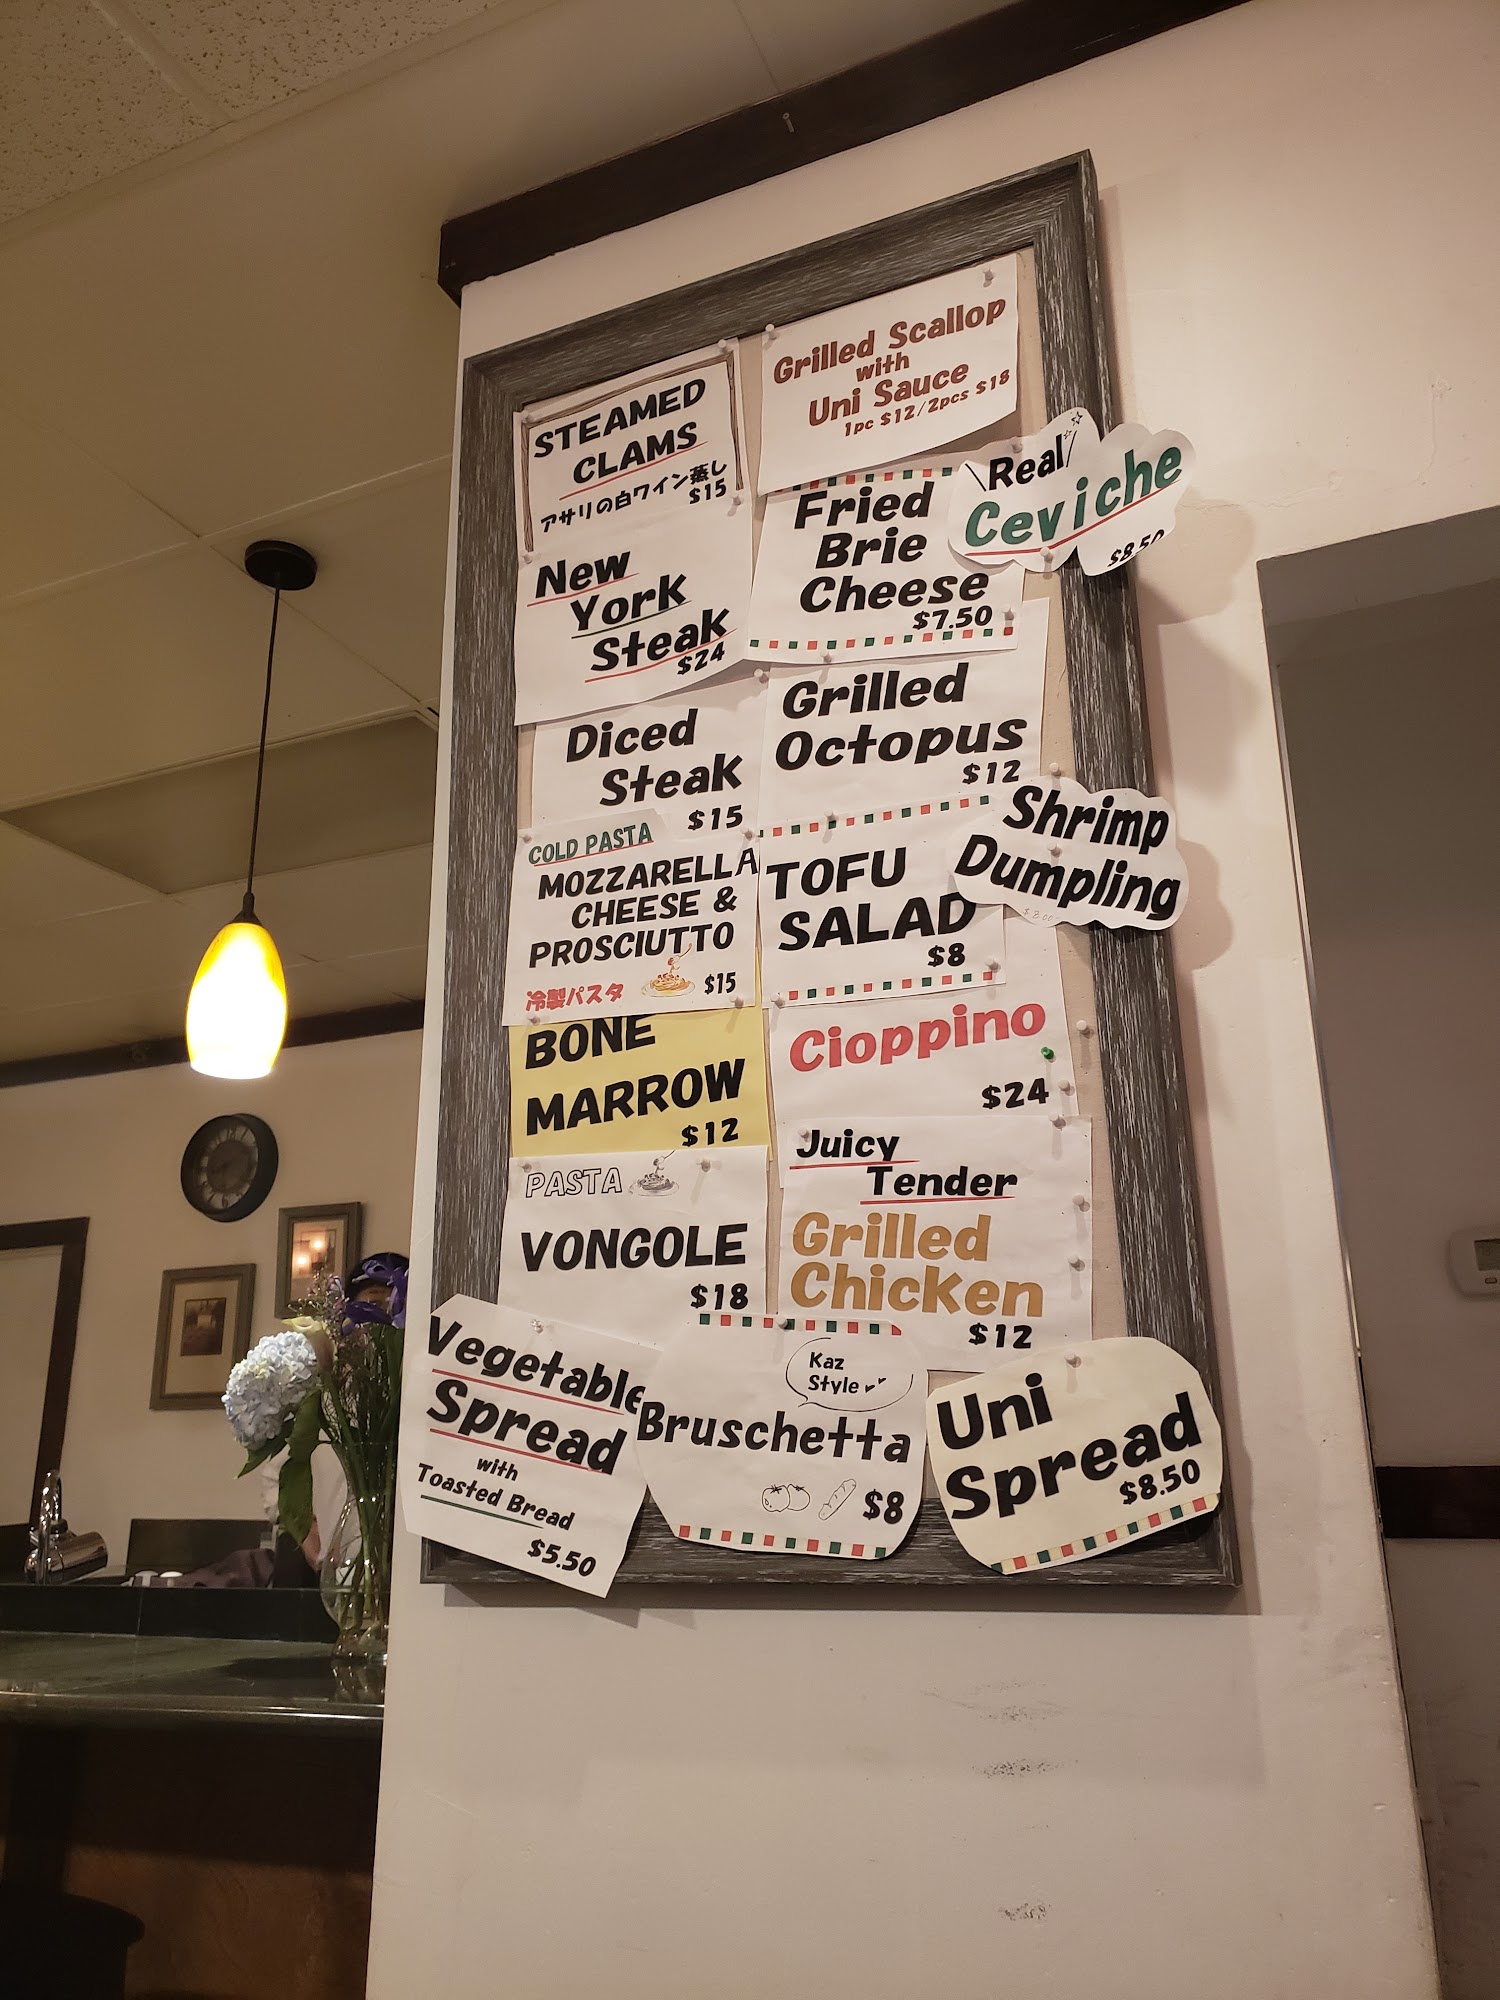 STEAMED
CLAMS
アサリの白ワイン蒸し
$15
New
York
Steak
$24
Diced
Steak
$15
COLD PASTA
MOZZARELLA
CHEESE &
PROSCIUTTO
冷製パスタ $15
BONE
MARROW
$12
PASTA
VONGOLE
$18
Vegetable
Spread
with
Toasted Bread
$5.50
Grilled Scallop
with
Uni Sauce
1pc $12/2pcs $18
Fried
Brie
Cheese
$7.50
Real
Ceviche
$8.50
Grilled
Octopus
$12
Shrimp
Dumpling
$8.00
TOFU
SALAD
$8
Cioppino
$24
Juicy
Tender
Grilled
Chicken
$12
Kaz
Style
Bruschetta
$8
Uni
Spread
$8.50